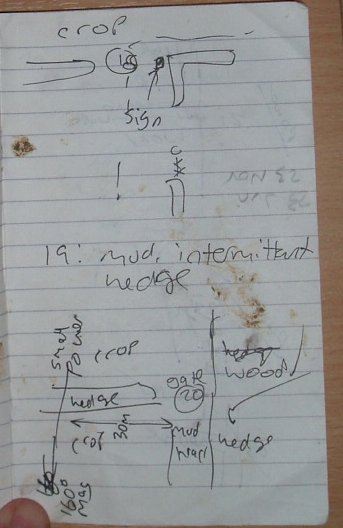 crop
18
sign
19: mud, intermittent
hedge
small
power
crop
hedge
wood
gate
20
hedge
30m
crop
mud
track
hedge
160°
mag
23 Nov